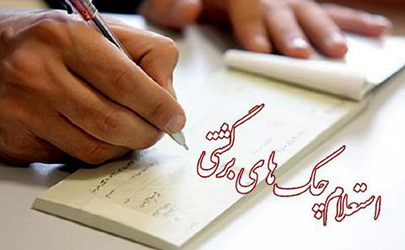 استعلام چک های برگشتی